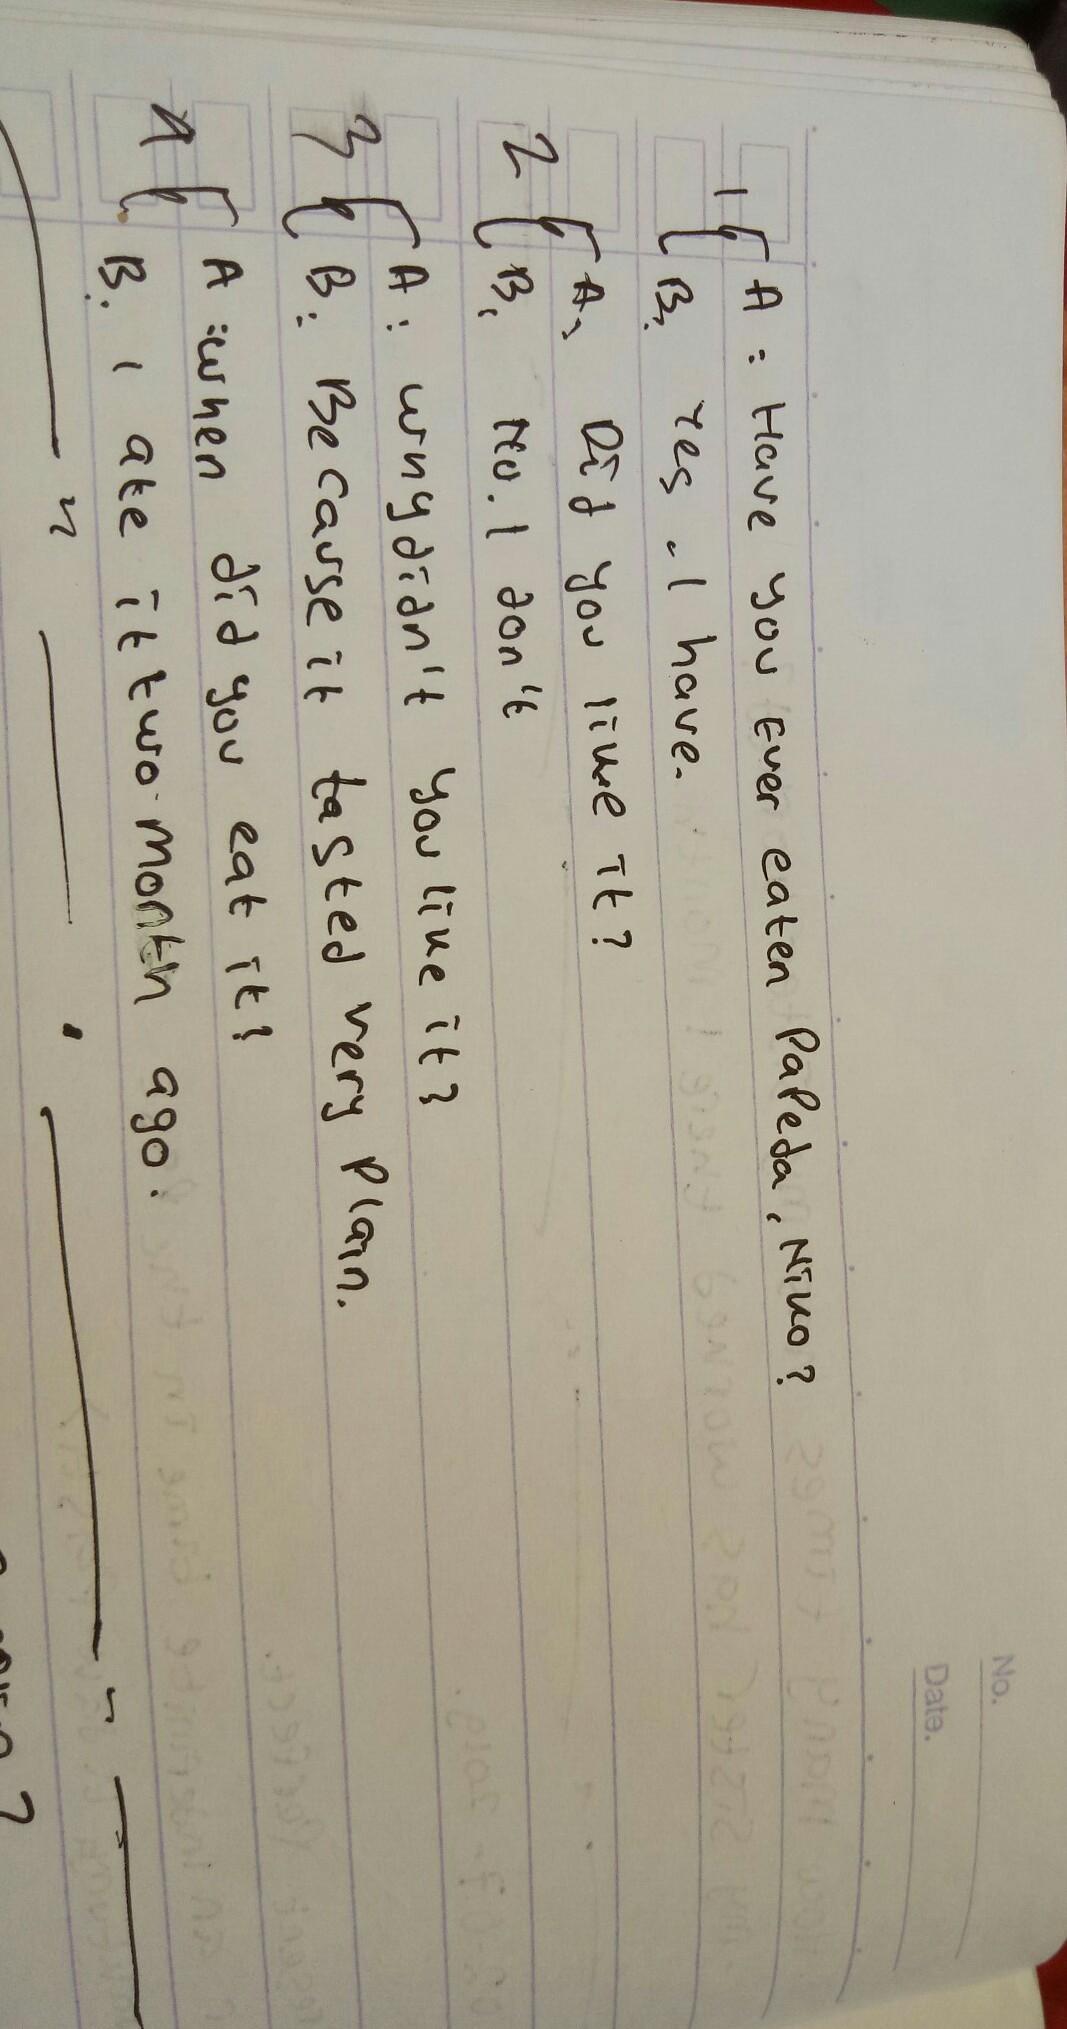 No.
Date.
1 { A : Have you Ever eaten PaPeda, Niko?
B: Yes, I have.
2 { A: Did you like it?
B: No. I don't
3 { A: Why didn't you like it?
B: Because it tasted very Plain.
4 { A: When did you eat it?
B: I ate it two month ago.